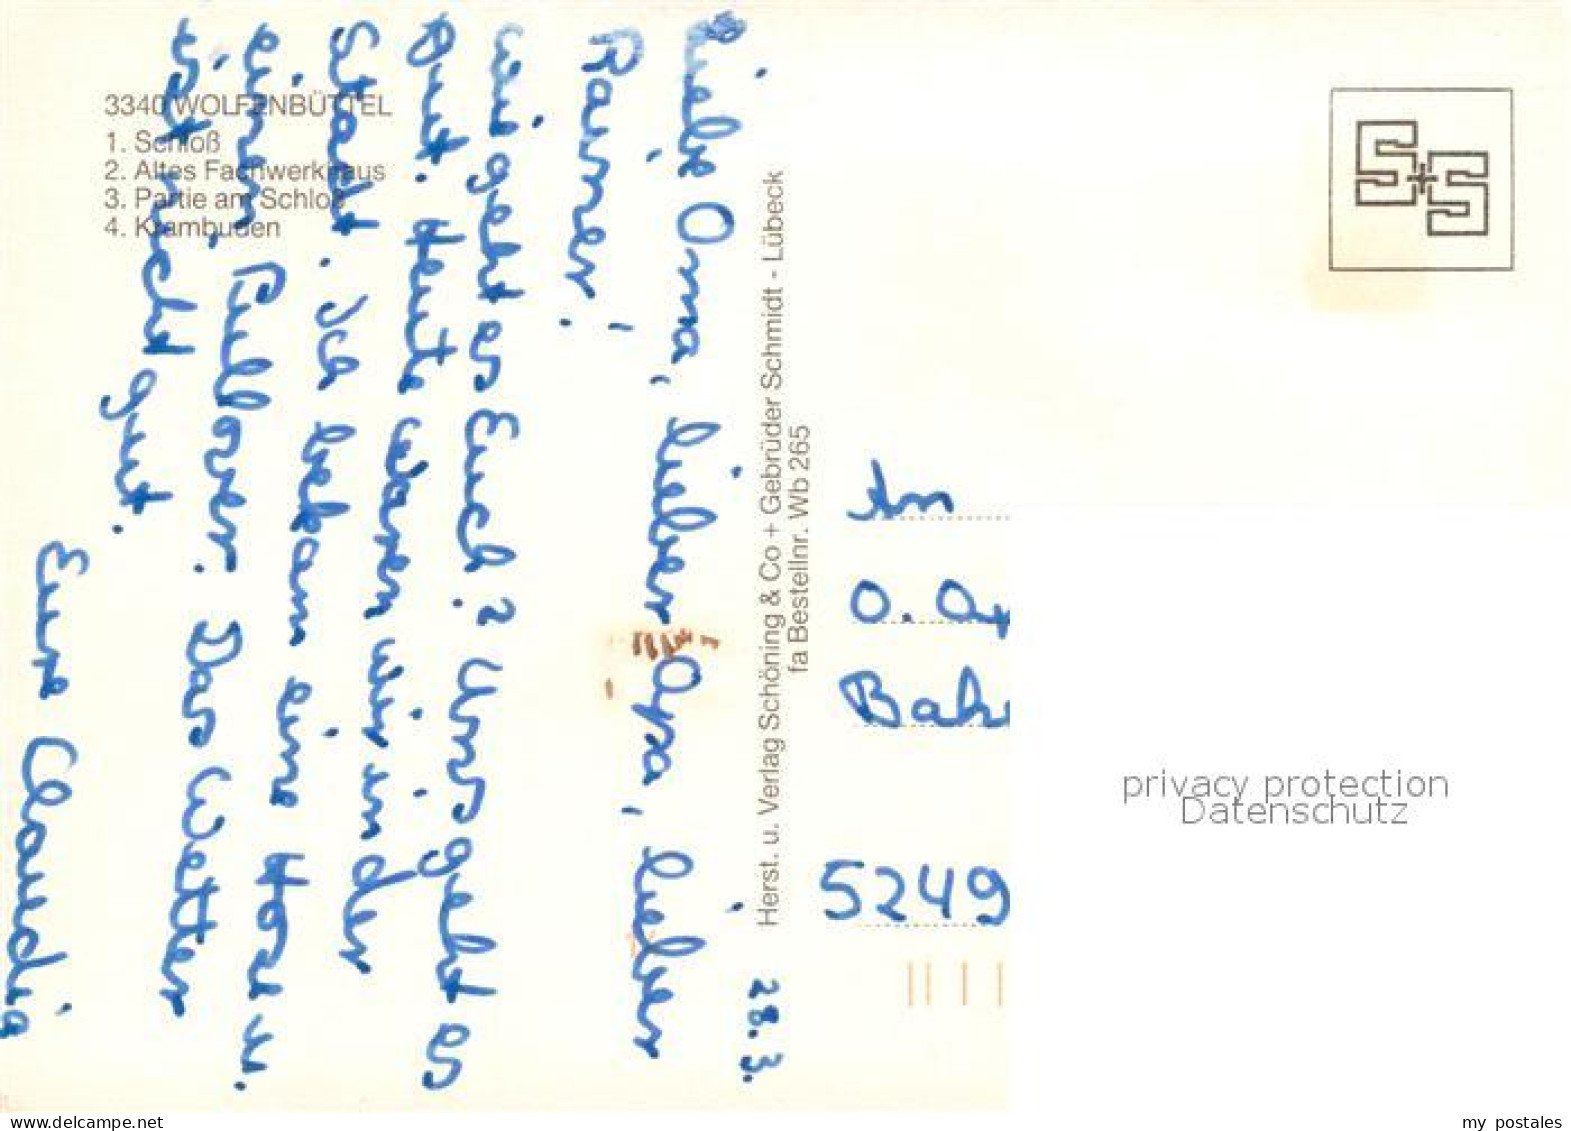 3340 WOLFENBÜTTEL
1. Schloß
2. Altes Fachwerkhaus
3. Partie am Schloß
4. Krambuden
28.3.
Liebe Oma, lieber Opa, lieber
Rainer!
wie geht es Euch? Uns geht es
gut. Heute waren wir in der
Stadt. Ich bekam eine Hose u.
einen Pullover. Das Wetter
ist nicht gut.
Eure Claudia
Herst. u. Verlag Schöning & Co + Gebrüder Schmidt - Lübeck
fa Bestellnr. Wb 265
S+S
An
O.
5249
privacy protection
Datenschutz
www.delcampe.net
my_postales